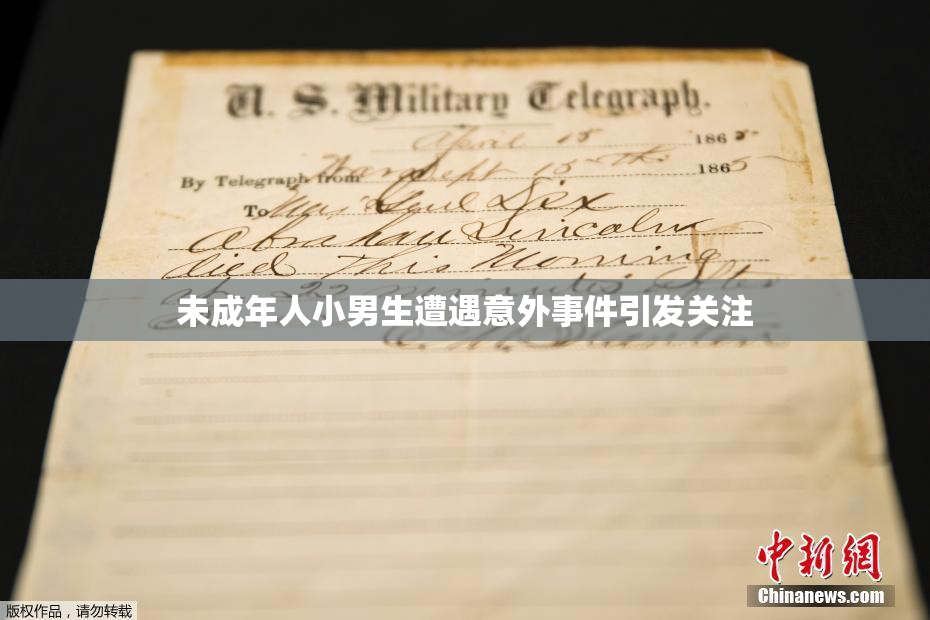 U. S. Military Telegraph.
April 15 1865
By Telegraph from War Dept 15th 1865
To Maj Genl Dix
Abraham Lincoln
died This Morning
at 22 minutes after
未成年人小男生遭遇意外事件引发关注
E. M. Stanton
中新网
Chinanews.com
版权作品，请勿转载